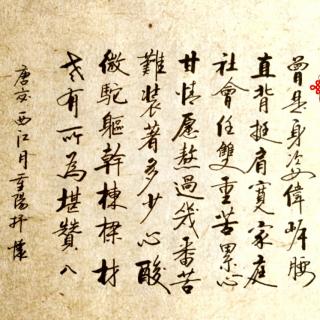 曾是身姿偉岸腰
直背挺肩寬家庭
社會任雙重苦累心
甘情愿熬過幾番苦
難裝著多少心酸
微駝軀幹棟樑材
老有所為堪贊八
唐安西江月重陽抒懷